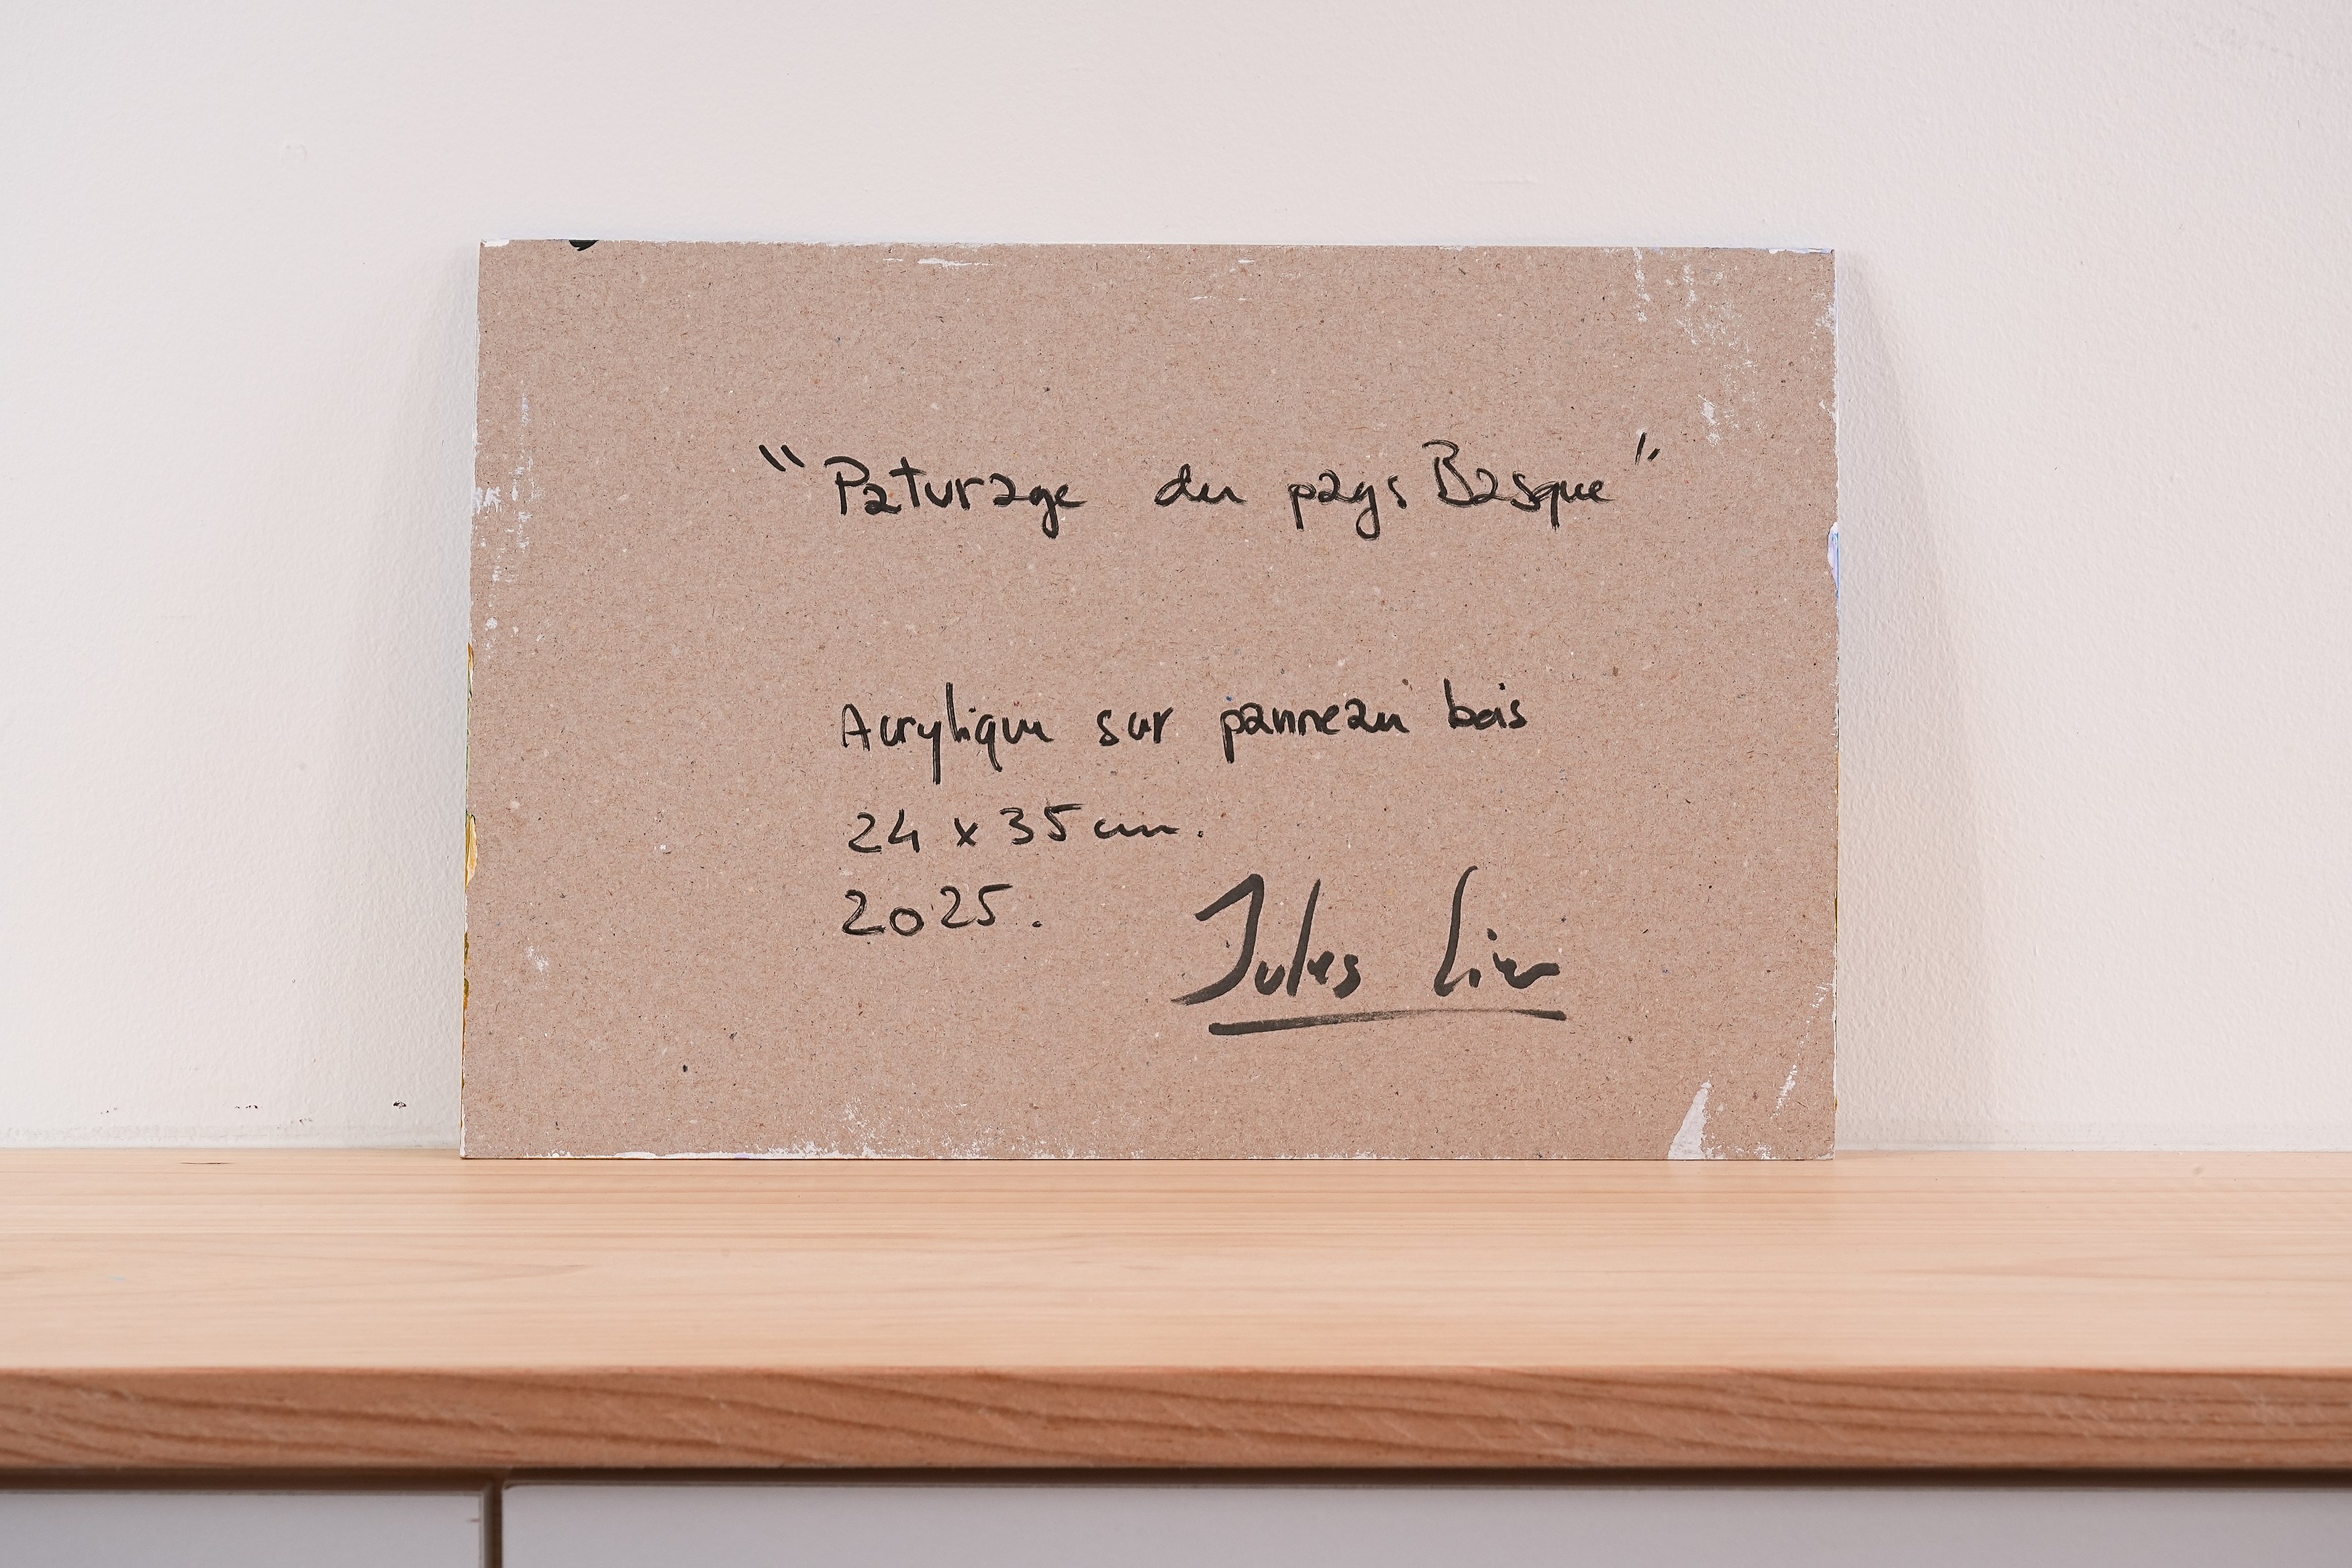 "Paturage du pays Basque"
Acrylique sur panneau bois
24 x 35 cm.
2025.
Jules